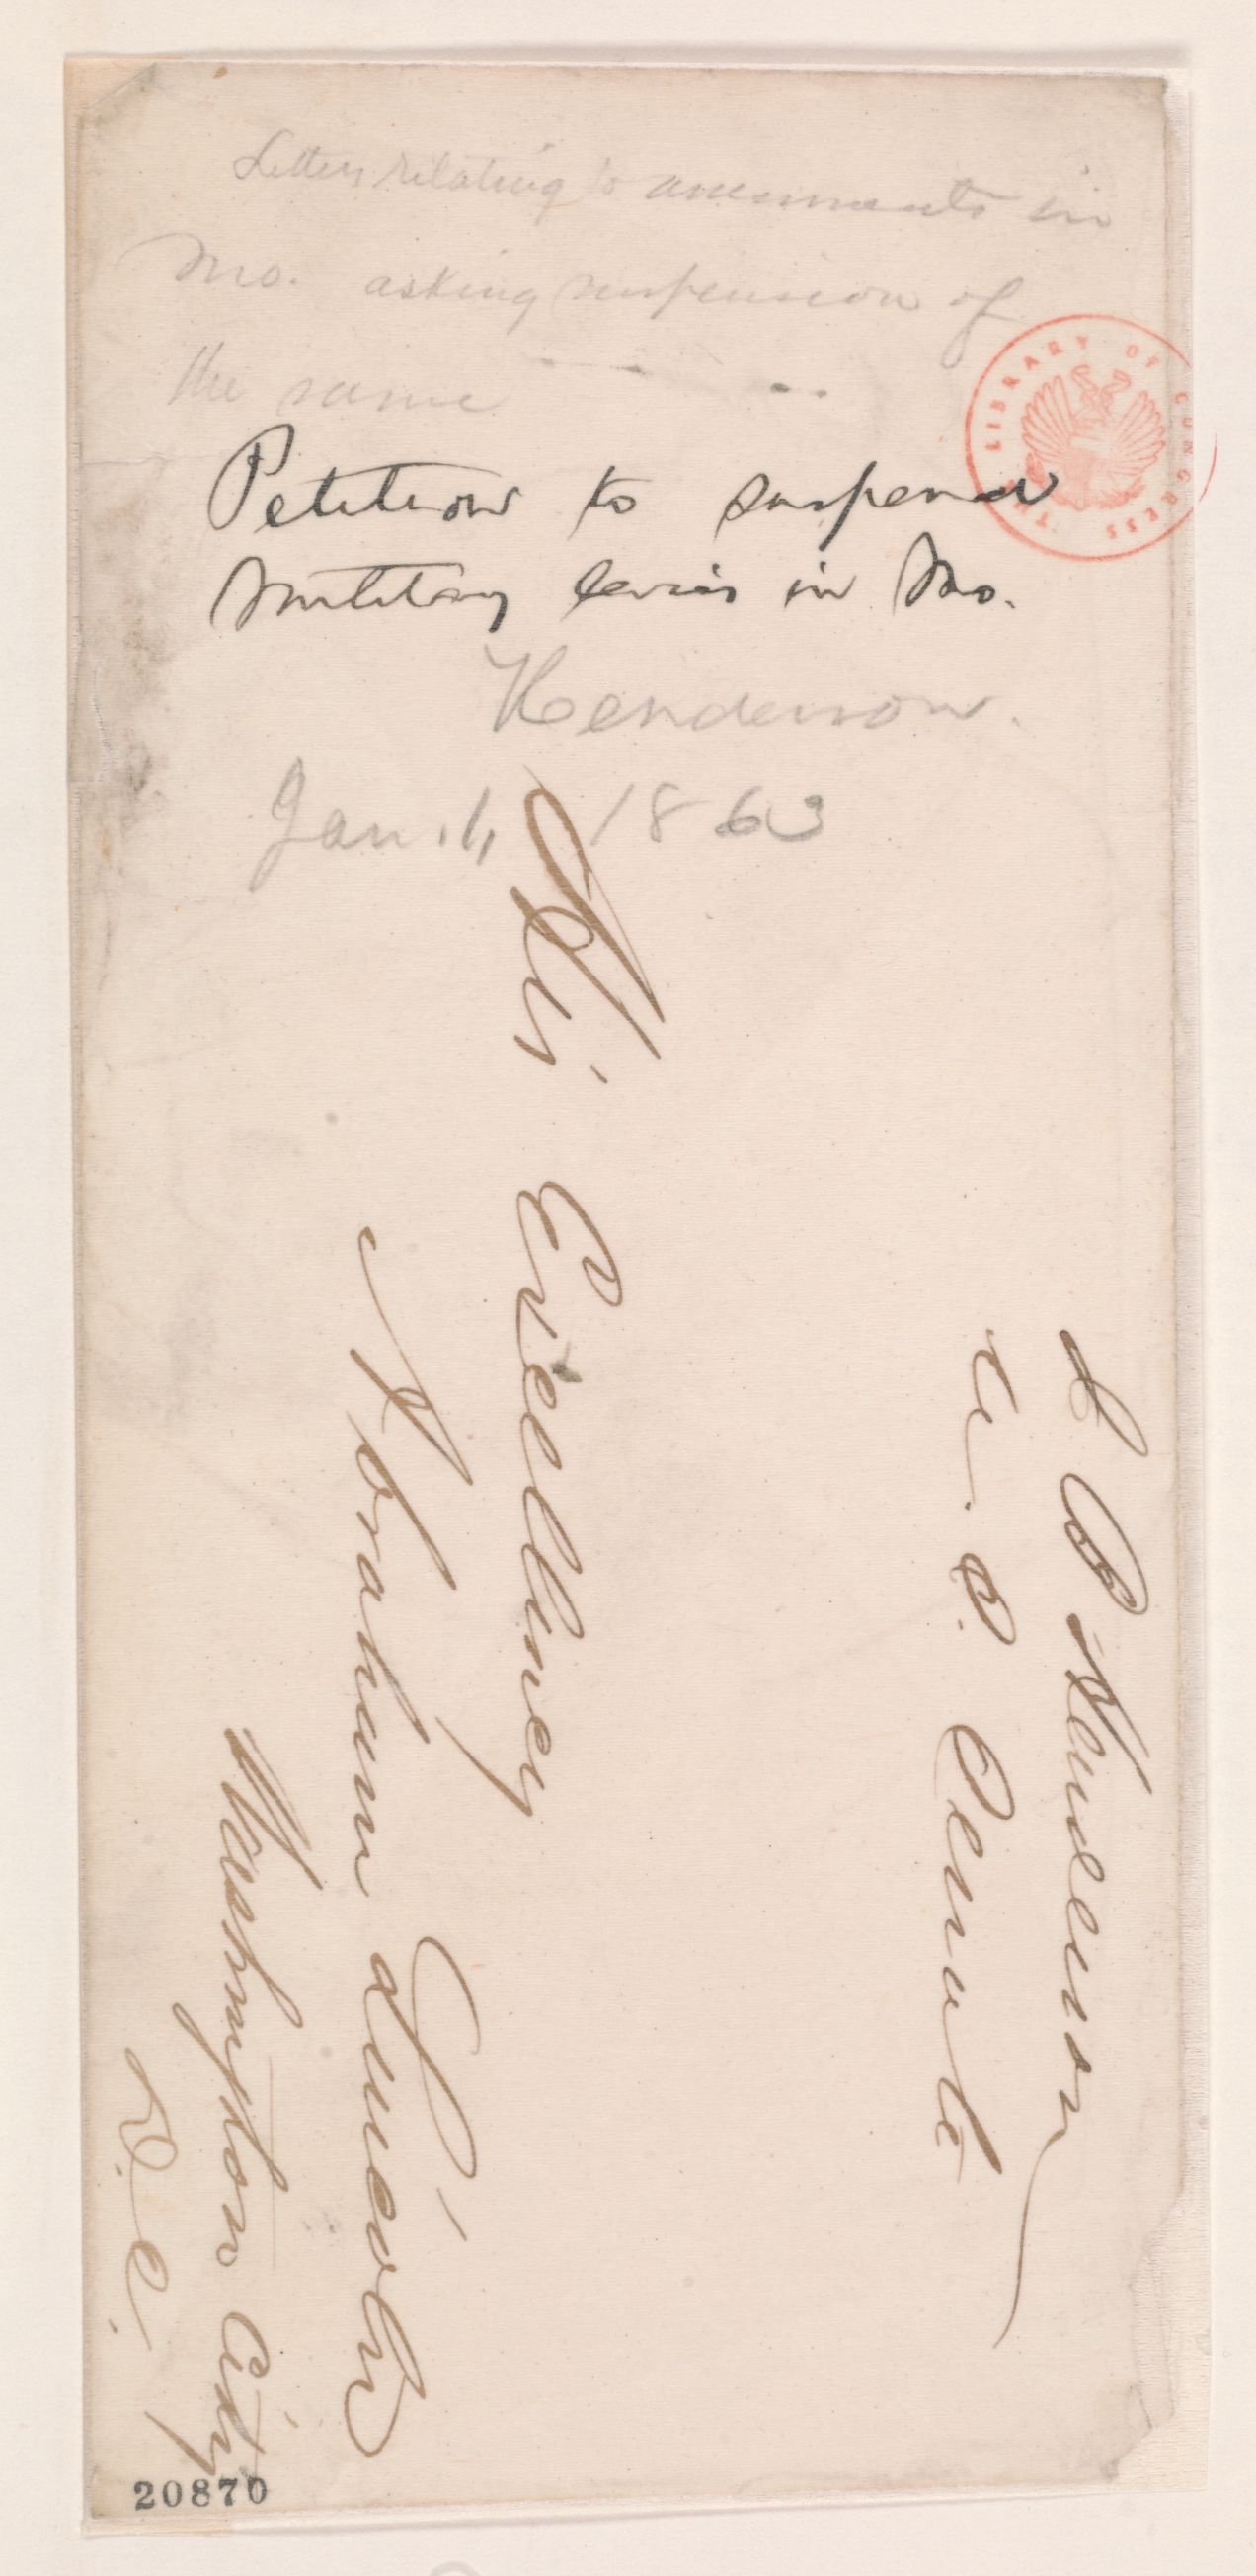 Letters relating to assessments in
Mo. asking suspension of
the same
Petition to suspend
Military levies in Mo.
Henderson.
Jan. 1, 1863
THE LIBRARY OF CONGRESS
J B Henderson
U. S. Senate
His Excellency
Abraham Lincoln
Washington City
D. C.
20870